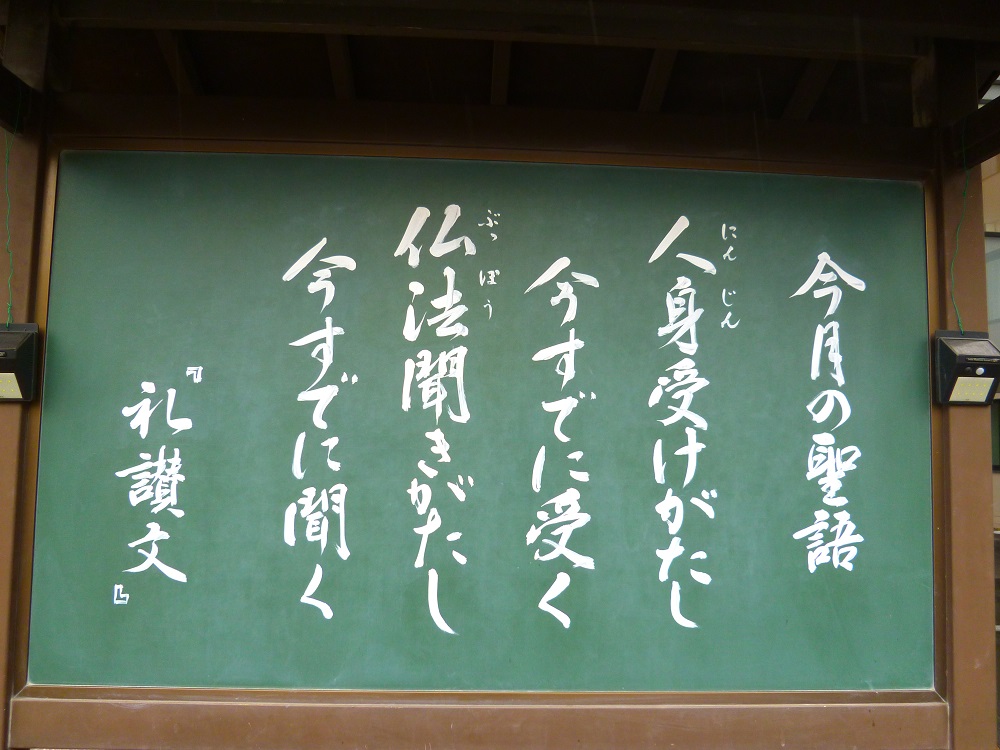 今月の聖語
人身受けがたし
にんじん
今すでに受く
仏法聞きがたし
ぶっぽう
今すでに聞く
『礼讃文』